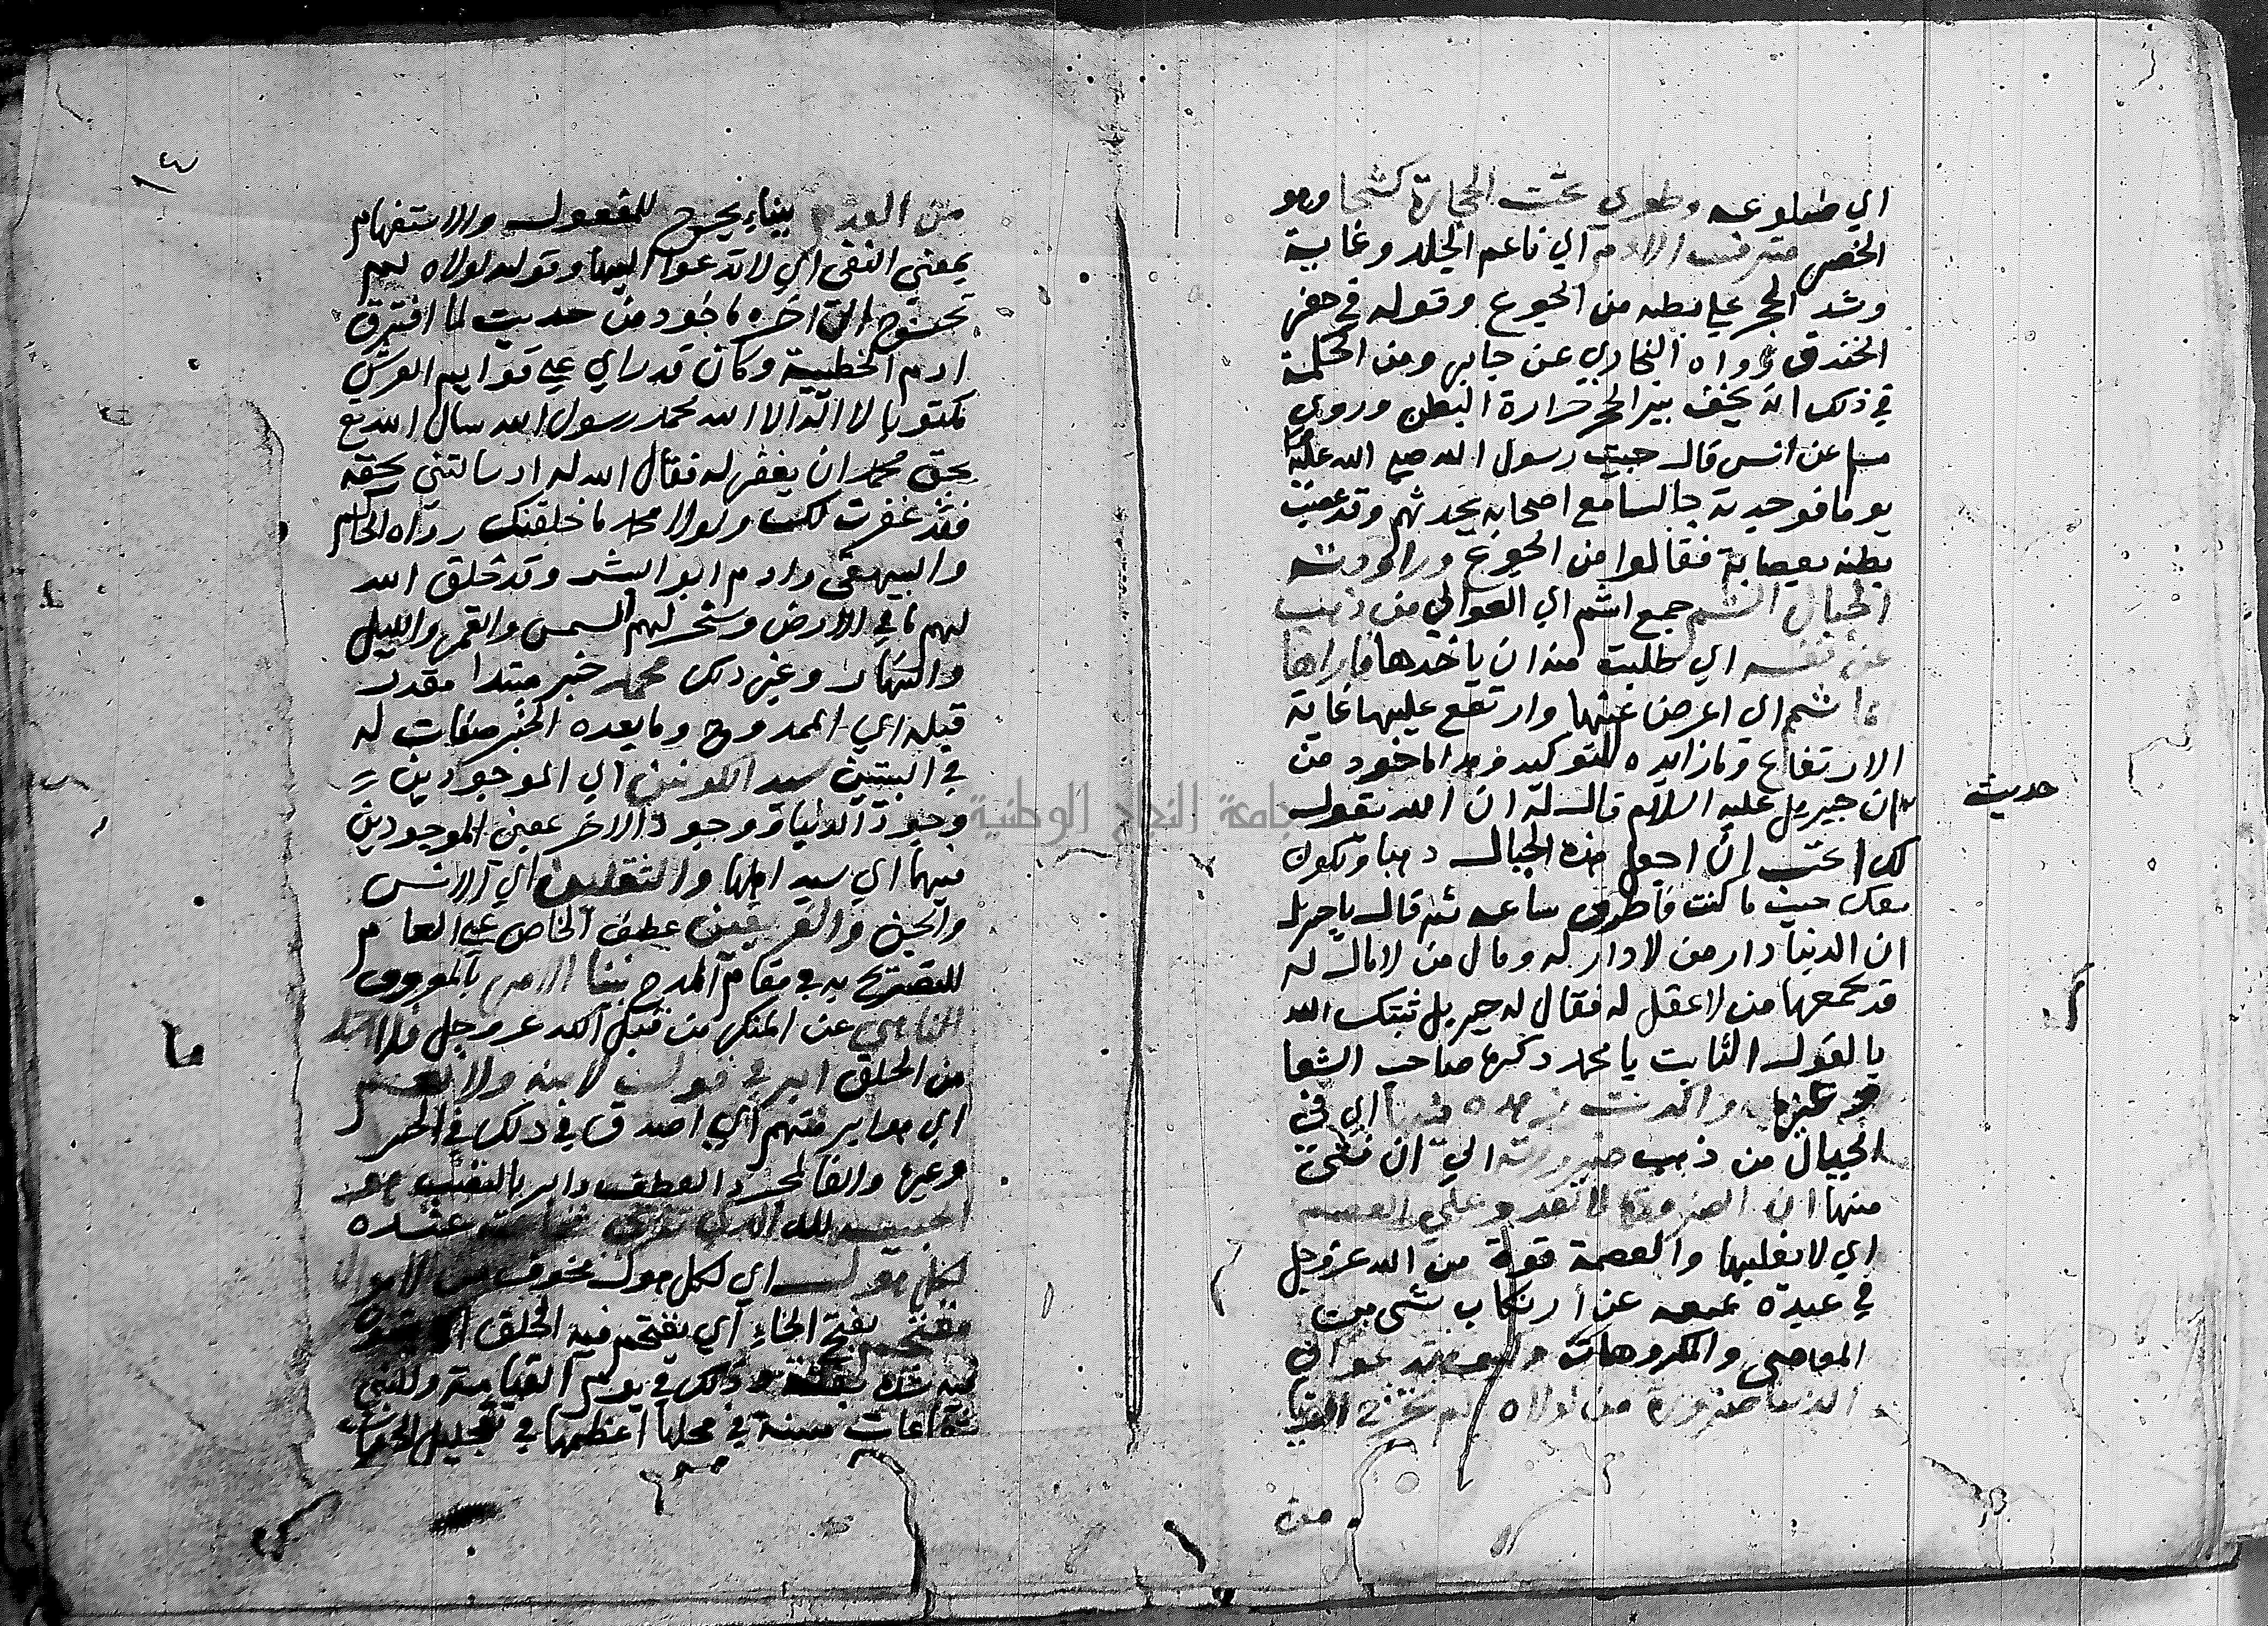 اي ضلوعه وطوى تحت الحجارة كشحا وهو
الخصر مترف الادم اي ناعم الجلد وغاية
وشد الحجر على بطنه من الجوع وقوله في حفر
الخندق رواه البخاري عن جابر ومن الحكمة
في ذلك انه يخفف ببرد الحجر حرارة البطن وروى
مسلم عن انس قال جيت رسول الله صلى الله عليه
يوما فوجدته جالسا مع اصحابه يحدثهم وقد عصب
بطنه بعصابة فقالوا من الجوع وراودته
الجبال الشم جمع اشم اي العوالي من ذهب
عن نفسه اي طلبت منه ان ياخدها فاراها
اشم اي اعرض عنها وارتفع عليها غاية
الارتفاع وما زايده للتوكيد وهدا ماخود من
ان جبريل عليه السلام قال له ان الله يقول
لك اتحب ان اجعل هذه الجبال دهبا وتكون
معك حيث ما كنت فاطرق ساعه ثم قال يا جبريل
ان الدنيا دار من لا دار له ومال من لا مال له
قد يجمعها من لا عقل له فقال له جبريل ثبتك الله
بالقول الثابت يا محمد دكره صاحب الشفا
وغيره واكدت زهده فيها اي في
الجبال من ذهب ضرورته الى ان
منها ان الضرورة لا تعدو على العصم
اي لا تغلبها والعصمة قوة من الله عز وجل
في عبده تمنعه عن ارتكاب شي من
المعاصي والمكروهات وكيف تدعو الى
الدنيا ضرورة من لولاه لم تخرج الدنيا
من
حديث
من العدم ببناء يخرج للمفعول والاستفهام
بمعني النفي اي لا تدعوا اليها وقوله لولاه لم
تخرج الى اخره ماخود من حديث لما اقترف
ادم الخطيية وكان قد راي على قوايم العرش
مكتوبا لا اله الا الله محمد رسول الله سال الله تع
بحق محمد ان يغفر له فقال الله له اد سالتني بحقه
فقد غفرت لك ولولا محمد ما خلقتك رواه الحاكم
والبيهقي وادم ابو البشر وقد خلق الله
لهم ما في الارض وسخر لهم الشمس والقمر والليل
والنهار وغير دلك محمد خبر مبتدا مقدر
قبله اي الممدوح وما بعده الخبر صفات له
في البيتين سيد الكونين اي الموجودين
وجود الدنيا ووجود الاخر عمن الموجودين
فيهما اي سيد اهلها والثقلين اي الانس
والجن والفريقين عطف الخاص على العام
للتصريح به في مقام المدح نبينا الامر بالمعروف
الناهي عن المنكر من قبل الله عز وجل فلا احد
من الخلق ابر في قول لا منه ولا نعم
اي هو ابر منهم اي اصدق في دلك في الخبر
وغيره والفا لمجرد العطف وابر بالنصب هو
الحبيب لله الذي ترجى شفاعته عنده
لكل هول اي لكل هول مخوف من الاهوال
مقتحم بفتح الحاء اي يقتحم فيه الخلق
فيه وذلك في يوم القيامة وللنبي
شفاعات مبينة في محلها اعظمها في تعجيل الحساب
ما